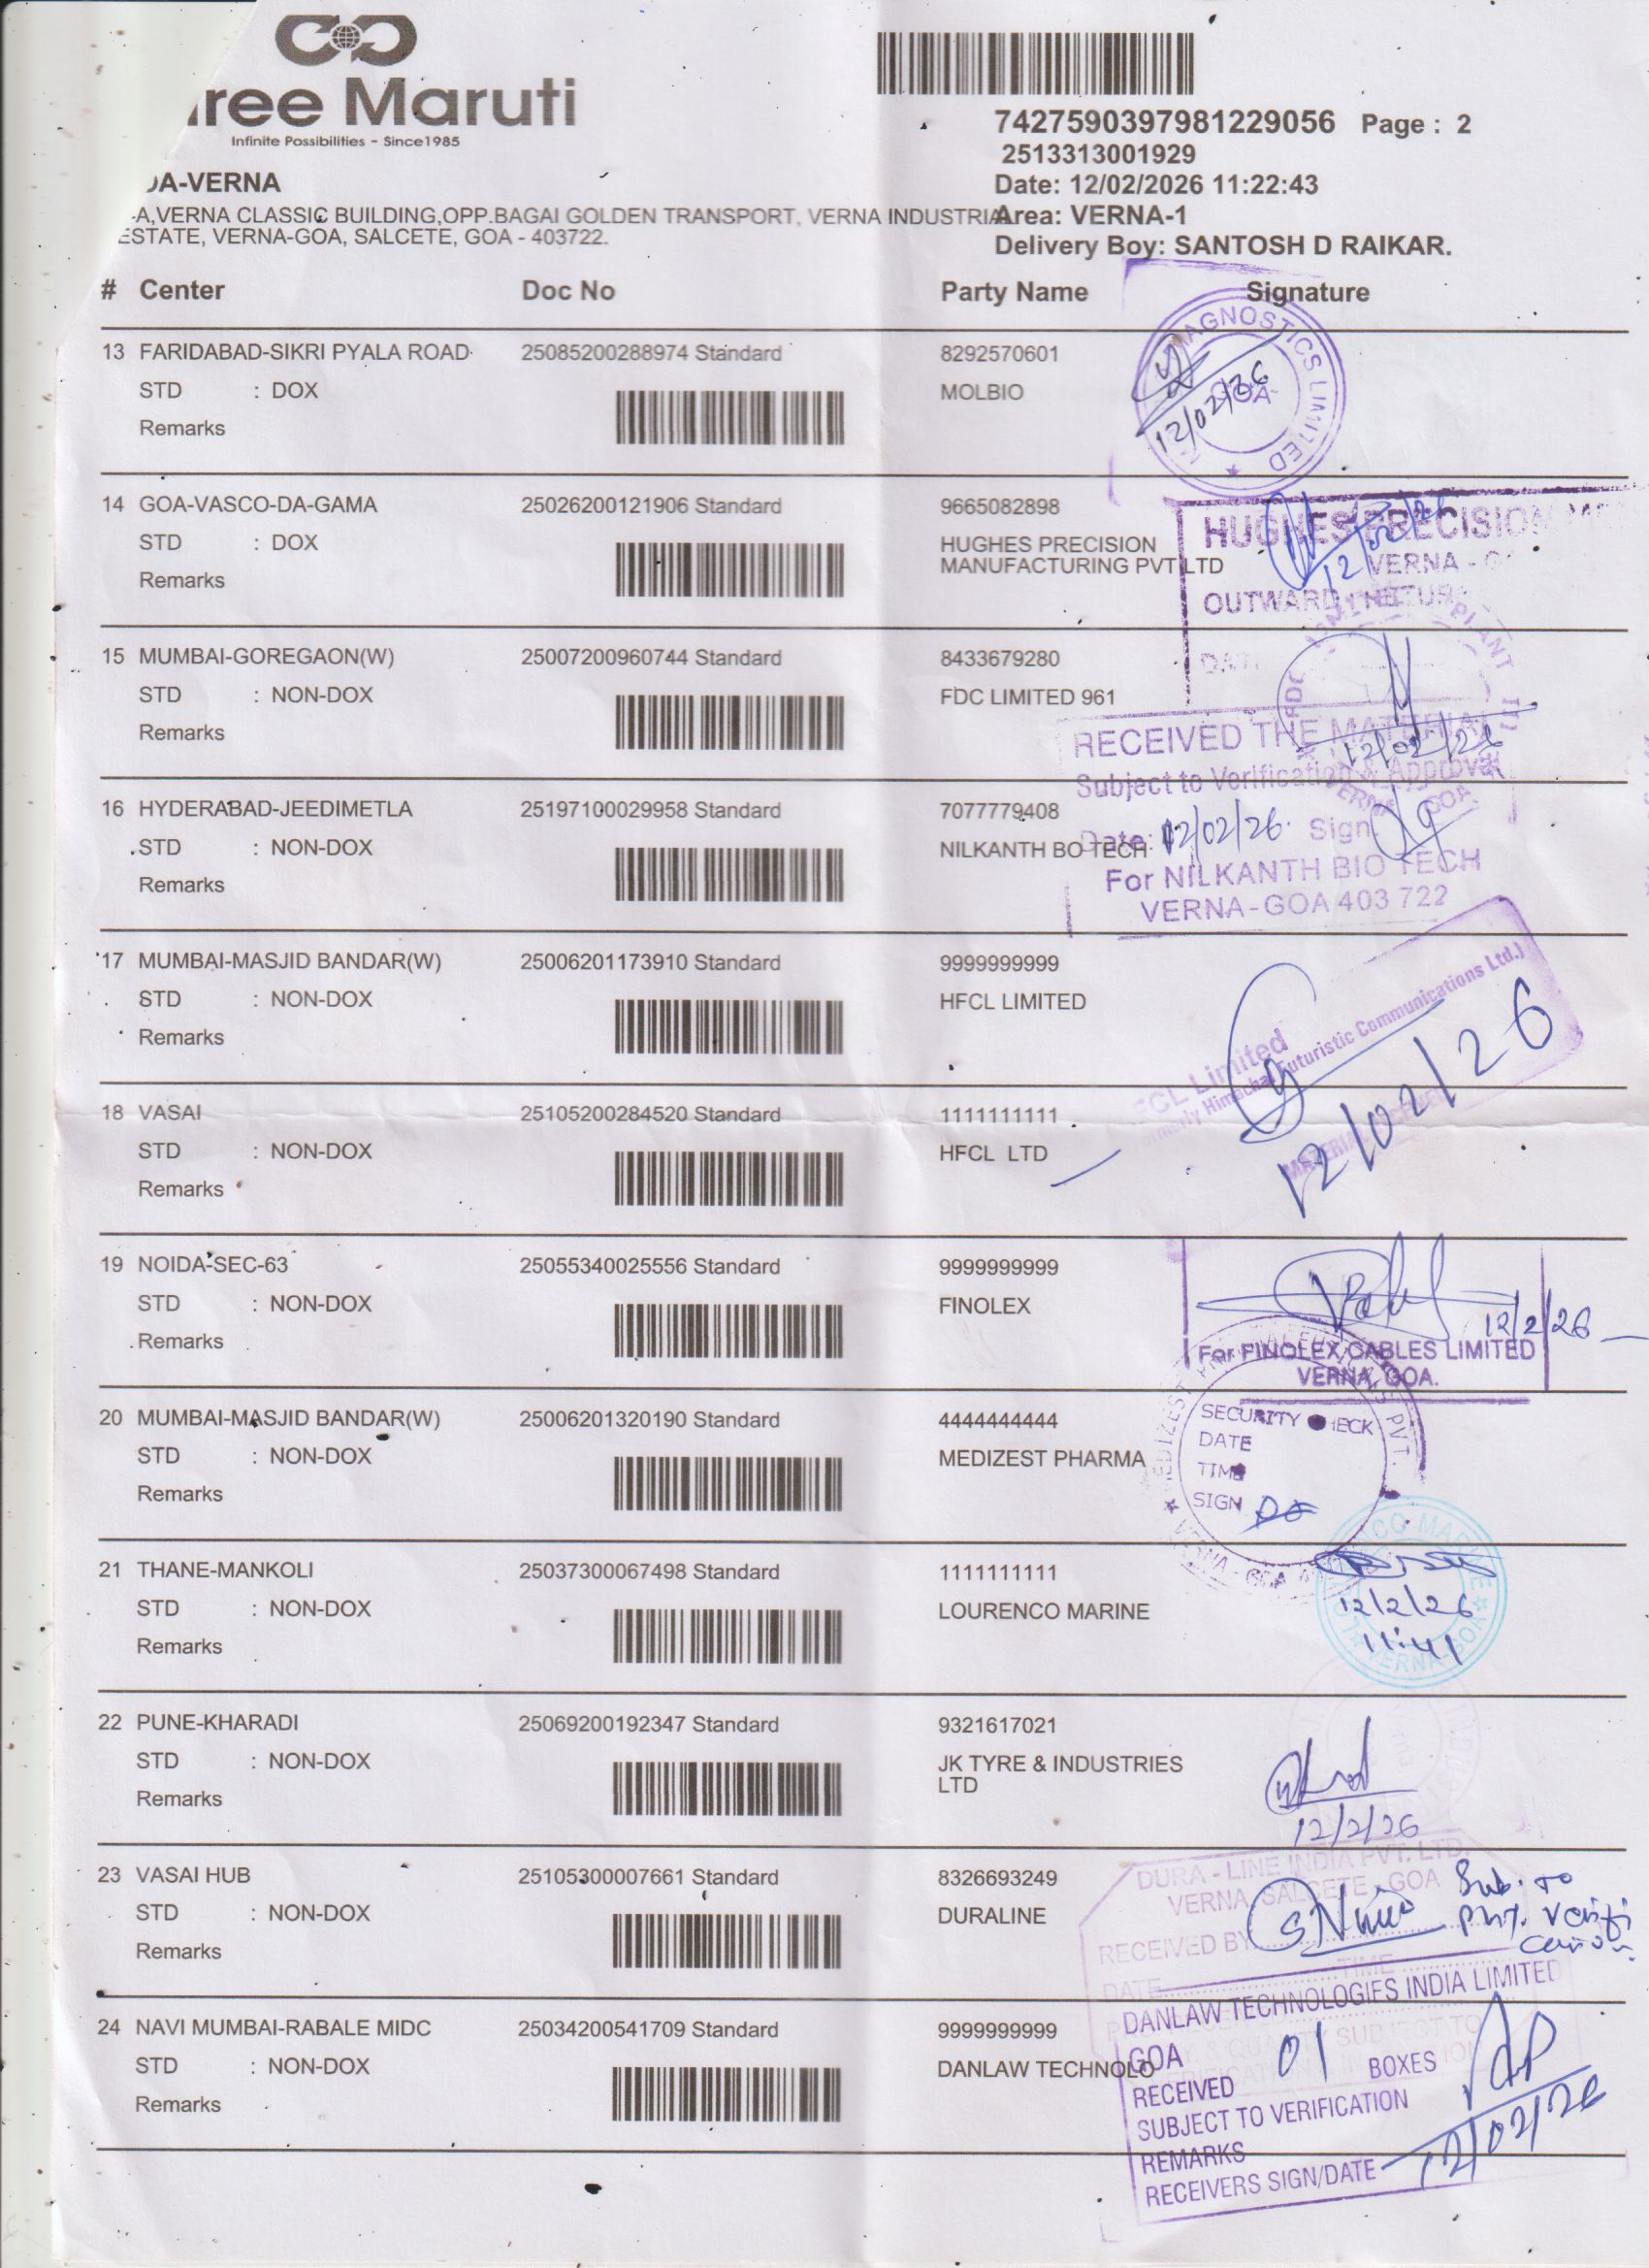 ree Maruti
Infinite Possibilities - Since1985
7427590397981229056 Page : 2
2513313001929
Date: 12/02/2026 11:22:43
Area: VERNA-1
Delivery Boy: SANTOSH D RAIKAR.
A-VERNA
-A,VERNA CLASSIC BUILDING,OPP.BAGAI GOLDEN TRANSPORT, VERNA INDUSTRIA
ESTATE, VERNA-GOA, SALCETE, GOA - 403722.
# Center Doc No Party Name Signature
13 FARIDABAD-SIKRI PYALA ROAD 25085200288974 Standard 8292570601
STD : DOX MOLBIO
Remarks
AGNOSTICS LIMITED
GOA
12/02/26
14 GOA-VASCO-DA-GAMA 25026200121906 Standard 9665082898
STD : DOX HUGHES PRECISION
MANUFACTURING PVT LTD
Remarks
HUGHES PRECISION
VERNA - G
OUTWARD
12/02/26
15 MUMBAI-GOREGAON(W) 25007200960744 Standard 8433679280
STD : NON-DOX FDC LIMITED 961
Remarks
12/02/26
RECEIVED THE MATERIAL
Subject to Verification & Approval
16 HYDERABAD-JEEDIMETLA 25197100029958 Standard 7077779408
STD : NON-DOX NILKANTH BO TECH
Remarks
Date: 12/02/26. Sign.
For NILKANTH BIO TECH
VERNA-GOA 403 722
17 MUMBAI-MASJID BANDAR(W) 25006201173910 Standard 9999999999
STD : NON-DOX HFCL LIMITED
Remarks
CL Limited
Himachal Futuristic Communications Ltd.)
12/02/26
18 VASAI 25105200284520 Standard 1111111111
STD : NON-DOX HFCL LTD
Remarks
19 NOIDA-SEC-63 25055340025556 Standard 9999999999
STD : NON-DOX FINOLEX
Remarks
12/2/26
For FINOLEX CABLES LIMITED
VERNA, GOA.
20 MUMBAI-MASJID BANDAR(W) 25006201320190 Standard 4444444444
STD : NON-DOX MEDIZEST PHARMA
Remarks
SECURITY CHECK
DATE
TIME
SIGN
21 THANE-MANKOLI 25037300067498 Standard 1111111111
STD : NON-DOX LOURENCO MARINE
Remarks
12/2/26
11:41
22 PUNE-KHARADI 25069200192347 Standard 9321617021
STD : NON-DOX JK TYRE & INDUSTRIES
LTD
Remarks
12/2/26
23 VASAI HUB 25105300007661 Standard 8326693249
STD : NON-DOX DURALINE
Remarks
DURA - LINE INDIA PVT. LTD.
VERNA, SALCETE - GOA
RECEIVED BY
DATE TIME
Sub. to
24 NAVI MUMBAI-RABALE MIDC 25034200541709 Standard 9999999999
STD : NON-DOX DANLAW TECHNOLO
Remarks
DANLAW TECHNOLOGIES INDIA LIMITED
GOA
RECEIVED 01 BOXES
SUBJECT TO VERIFICATION
REMARKS
RECEIVERS SIGN/DATE 12/02/26